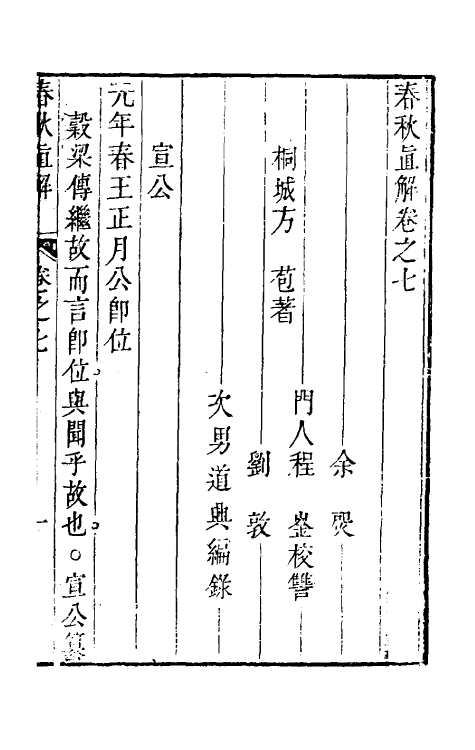 春秋直解卷之七
余熂
桐城方　苞著　門人程　崟校讐
劉敦
次男道興編錄
宣公
元年春王正月公卽位
穀梁傳繼故而言卽位與聞乎故也○宣公篡
春秋直解　卷之七　一